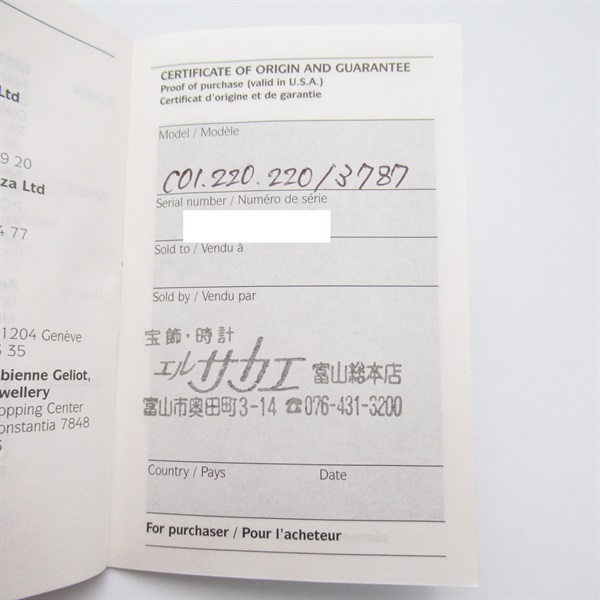 Ltd
9 20
za Ltd
4 77
1204 Genève
3 35
bienne Geliot,
wellery
opping Center
onstantia 7848
CERTIFICATE OF ORIGIN AND GUARANTEE
Proof of purchase (valid in U.S.A.)
Certificat d'origine et de garantie
Model / Modèle
C01.220.220/3787
Serial number / Numéro de série
Sold to / Vendu à
Sold by / Vendu par
宝飾・時計
エルサカエ 富山総本店
富山市奥田町3-14 ☎076-431-3200
Country / Pays Date
For purchaser / Pour l'acheteur